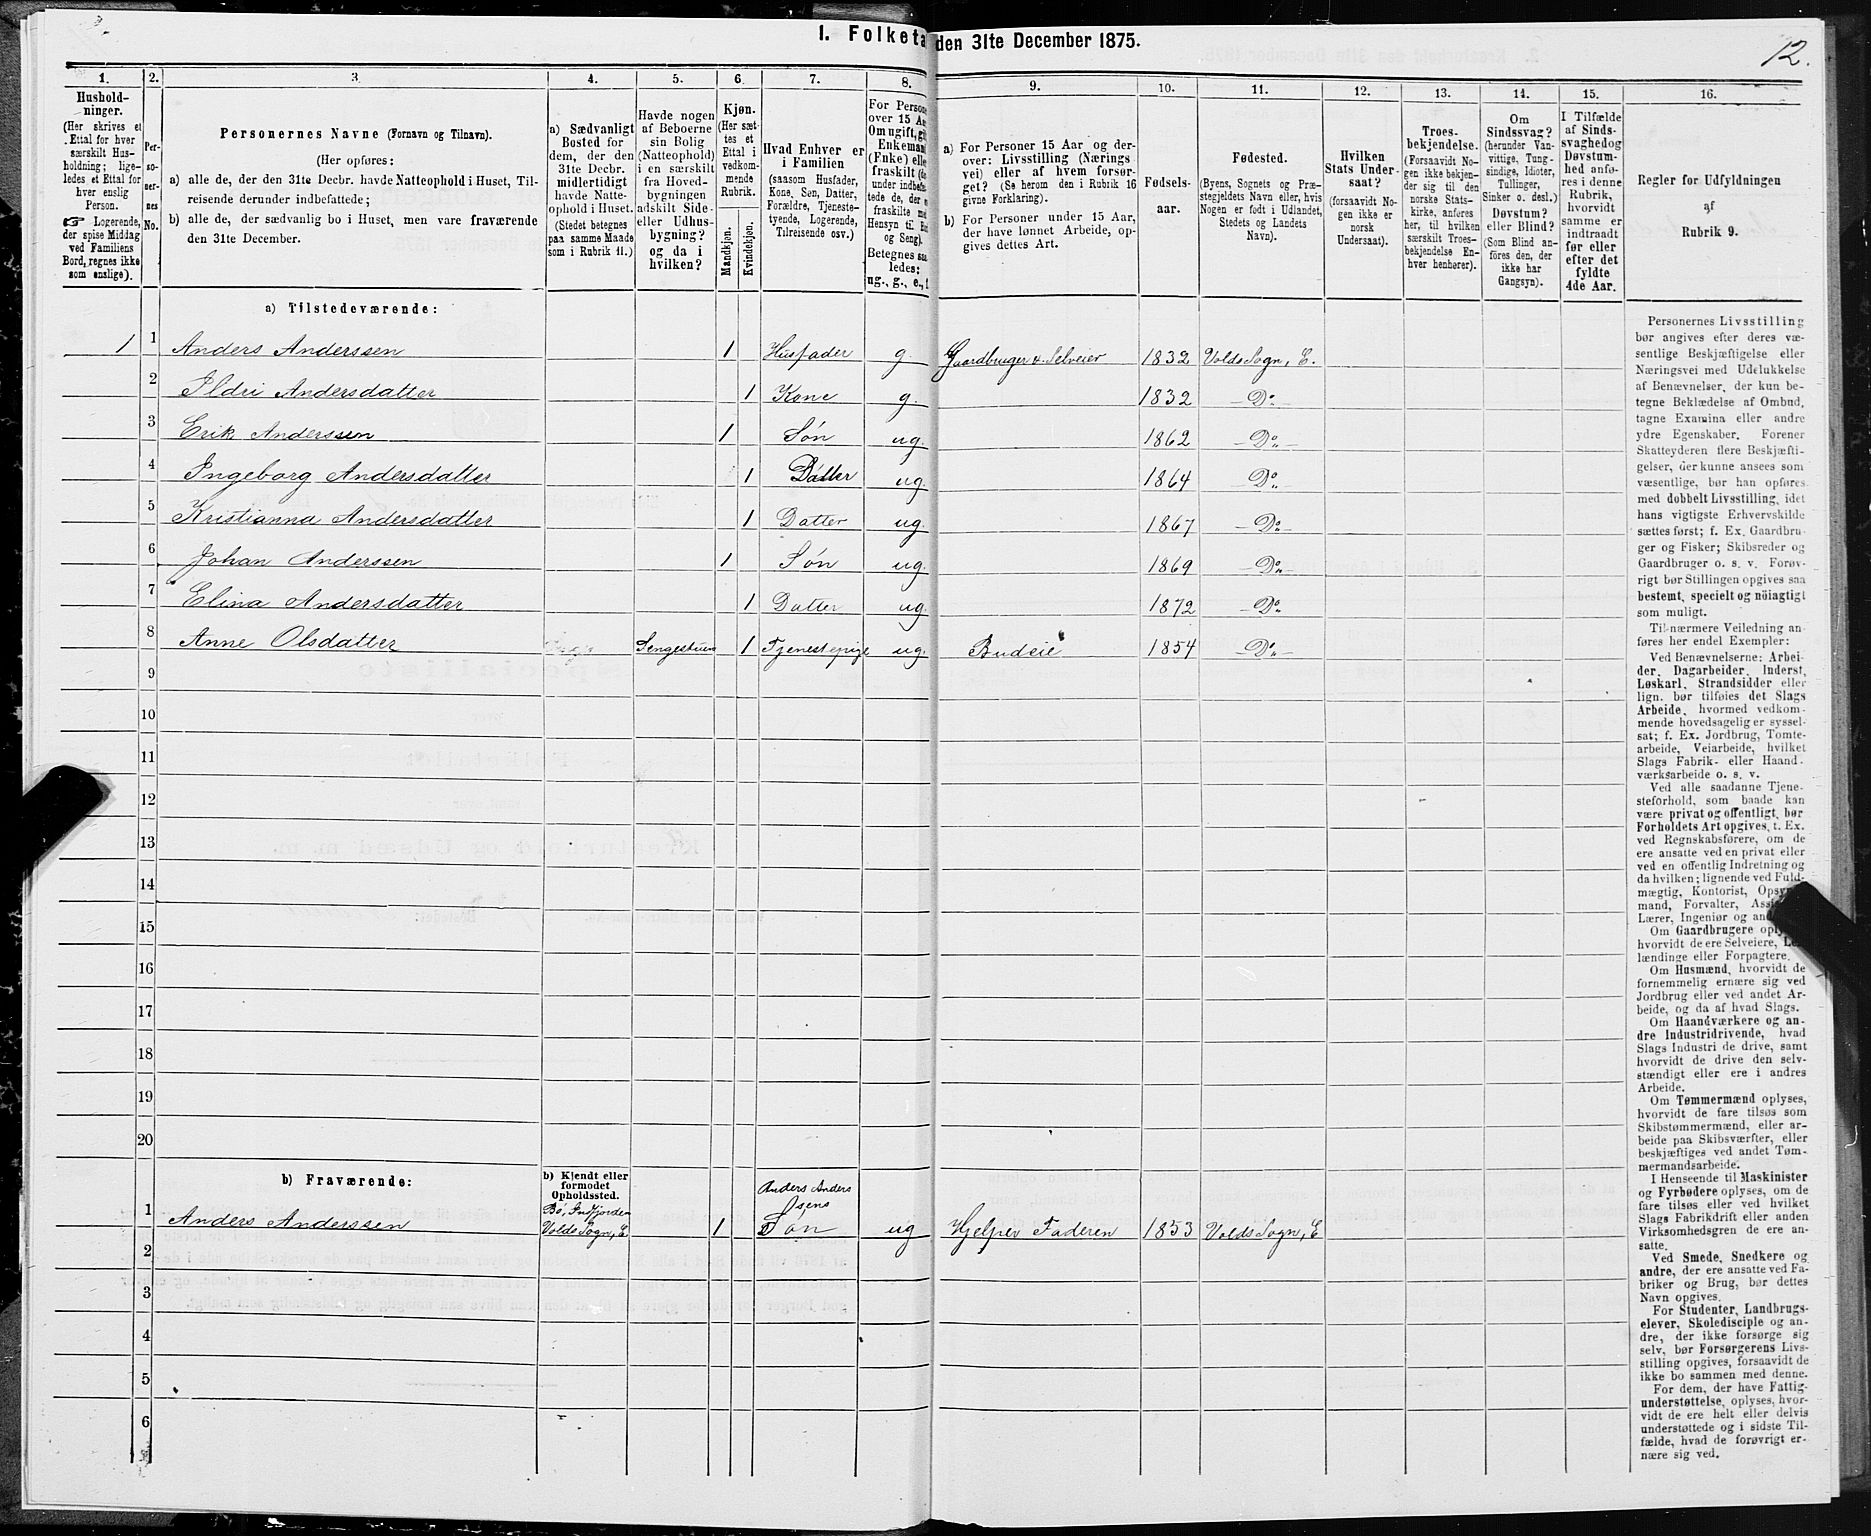 1. Folketa den 31te December 1875.
12.
1. 2. 3. 4. 5. 6. 7. 8. 9. 10. 11. 12. 13. 14. 15. 16.
Hushold-
ninger.
(Her skrives et
Ettal for hver
særskilt Hus-
holdning; lige-
ledes et Ettal for
hver enslig
Person.
☞ Logerende,
der spise Middag
ved Familiens
Bord, regnes ikke
som enslige).
Per-
so-
ner-
nes
No.
Personernes Navne (Fornavn og Tilnavn).
(Her opføres:
a) alle de, der den 31te Decbr. havde Natteophold i Huset, Til-
reisende derunder indbefattede;
b) alle de, der sædvanlig bo i Huset, men vare fraværende
den 31te December.
a) Sædvanligt
Bosted for
dem, der den
31te Decbr.
midlertidigt
havde Natte-
ophold i Huset.
(Stedet betegnes
paa samme Maade
som i Rubrik 11.)
Havde nogen
af Beboerne
sin Bolig
(Natteophold)
i en særskilt
fra Hoved-
bygningen
adskilt Side-
eller Udhus-
bygning?
og da i
hvilken?
Kjøn.
(Her sæt-
tes et
Ettal i
vedkom-
mende
Rubrik.
Mandkjøn.
Kvindekjøn.
Hvad Enhver er
i Familien
(saasom Husfader,
Kone, Søn, Datter,
Forældre, Tjeneste-
tyende, Logerende,
Tilreisende osv.)
For Persone
over 15 Aa
Om ugift, gi
Enkeman
(Enke) elle
fraskilt (de
under indbefa
tede de, der e
fraskilte me
Hensyn til Bo
og Seng).
Betegnes saa
ledes:
ug., g., e., f
a) For Personer 15 Aar og der-
over: Livsstilling (Nærings
vei) eller af hvem forsør-
get? (Se herom den i Rubrik 16
givne Forklaring).
b) For Personer under 15 Aar,
der have lønnet Arbeide, op-
gives dettes Art.
Fødsels-
aar.
Fødested.
(Byens, Sognets og Præ-
stegjeldets Navn eller, hvis
Nogen er født i Udlandet,
Stedets og Landets
Navn).
Hvilken
Stats Under-
saat?
(forsaavidt No-
gen ikke er
norsk
Undersaat).
Troes-
bekjendelse.
(Forsaavidt No-
gen ikke bekjen-
der sig til den
norske Stats-
kirke, anføres
her, til hvilken
særskilt Troes-
bekjendelse En-
hver henhører).
Om
Sindssvag?
(herunder Van-
vittige, Tung-
sindige, Idioter,
Tullinger,
Sinker o. desl.)
Døvstum?
eller Blind?
(Som Blind an-
føres den, der
ikke har
Gangsyn).
I Tilfælde
af Sinds-
svaghed og
Døvstum-
hed anfø-
res i denne
Rubrik,
hvorvidt
samme er
indtraadt
før eller
efter det
fyldte
4de Aar.
Regler for Udfyldningen
af
Rubrik 9.
a) Tilstedeværende:
1 1 Anders Anderssen 1 Husfader g. Gaardbruger & Selveier 1832 Volds Sogn, E.
2 Ildri Andersdatter 1 Kone g. 1832 -Do-
3 Erik Anderssen 1 Søn ug. 1862 -Do-
4 Ingeborg Andersdatter 1 Datter ug. 1864 -Do-
5 Kristianna Andersdatter 1 Datter ug. 1867 -Do-
6 Johan Anderssen 1 Søn ug. 1869 -Do-
7 Elina Andersdatter 1 Datter ug. 1872 -Do-
8 Anne Olsdatter Sengestuen 1 Tjenestepige ug. Budeie 1854 -Do-
9
10
11
12
13
14
15
16
17
18
19
20
b) Fraværende:
b) Kjendt eller
formodet
Opholdssted.
1 Anders Anderssen Bö, Indfjorden Volds Sogn, E 1 Anders Anders sens Søn ug Hjelper Faderen 1853 Volds Sogn, E
2
3
4
5
6
Personernes Livsstilling
bør angives efter deres væ-
sentlige Beskjæftigelse eller
Næringsvei med Udelukkelse
af Benævnelser, der kun be-
tegne Beklædelse af Ombud,
tagne Examina eller andre
ydre Egenskaber. Forener
Skatteyderen flere Beskjæfti-
gelser, der kunne ansees som
væsentlige, bør han opføres
med dobbelt Livsstilling, idet
hans vigtigste Erhvervskilde
sættes først; f. Ex. Gaardbru-
ger og Fisker; Skibsreder og
Gaardbruger o. s. v. Forøv-
rigt bør Stillingen opgives saa
bestemt, specielt og nöiagtigt
som muligt.
Til nærmere Veiledning an-
føres her endel Exempler:
Ved Benævnelserne: Arbei-
der, Dagarbeider, Inderst,
Løskarl, Strandsidder eller
lign. bør tilføies det Slags
Arbeide, hvormed vedkom-
mende hovedsagelig er syssel-
sat; f. Ex. Jordbrug, Tomte-
arbeide, Veiarbeide, hvilket
Slags Fabrik- eller Haand-
værksarbeide o. s. v.
Ved alle saadanne Tjene-
steforhold, som baade kan
være privat og offentligt, bør
Forholdets Art opgives, t. Ex.
ved Regnskabsførere, om de
ere ansatte ved en privat eller
ved en offentlig Indretning og
da hvilken; lignende ved Fuld-
mægtig, Kontorist, Opsyns-
mand, Forvalter, Assi
Lærer, Ingeniør og an
Om Gaardbrugere oply
hvorvidt de ere Selveiere, Lei-
lændinge eller Forpagtere.
Om Husmænd, hvorvidt de
fornemmelig ernære sig ved
Jordbrug eller ved andet Ar-
beide, og da af hvad Slags.
Om Haandværkere og an-
dre Industridrivende, hvad
Slags Industri de drive, samt
hvorvidt de drive den selv-
stændigt eller ere i andres
Arbeide.
Om Tømmermænd oplyses,
hvorvidt de fare tilsøs som
Skibstømmermænd, eller ar-
beide paa Skibsværfter, eller
beskjæftiges ved andet Tøm-
mermandsarbeide.
I Henseende til Maskinister
og Fyrbødere oplyses, om de
fare tilsøs eller ved hvilket
Slags Fabrikdrift eller anden
Virksomhedsgren de ere an-
satte.
Ved Smede, Snedkere og
andre, der ere ansatte ved Fa-
briker og Brug, bør dettes
Navn opgives.
For Studenter, Landbrugs-
elever, Skoledisciple og an-
dre, der ikke forsørge sig
selv, bør Forsørgerens Livs-
stilling opgives, forsaavidt de
ikke bo sammen med denne.
For dem, der have Fattig-
understøttelse, oplyses, hvor-
vidt de ere helt eller delvis
understøttede og i sidste Til-
fælde, hvad de forøvrigt er-
nære sig ved.